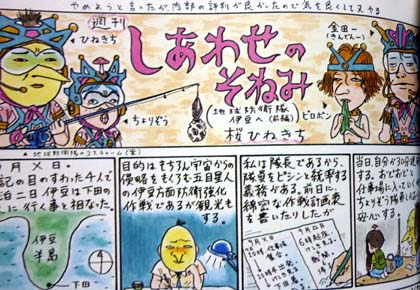 やめようと言ったが内部の評判が良かったので気を良くして又やる
週刊
しあわせの
そねみ
(地球防衛隊
伊豆へ(前編)
桜ひねきち
ひねきち
ちょりぞう
金田一
(きんどんー)
ピロポン
地球防衛隊のコスチューム(愛)
月×日。
記の目のすわった4人で
泊二日伊豆は下田の
に行く事と相なった。
伊豆
半島
下田
目的はもちろん宇宙からの
侵略をもくろむ五目星人
の伊豆方面防衛強化
作戦であるが観光も
する。
私は隊長であるから、
隊員をビシッと統率する
義務がある。前日に、
綿密な作戦計画表
を書いたりしたが
当日、自分が30分遅刻
する。おどおどと
仕事場に入って
ちょりぞう隊員に
安心する。